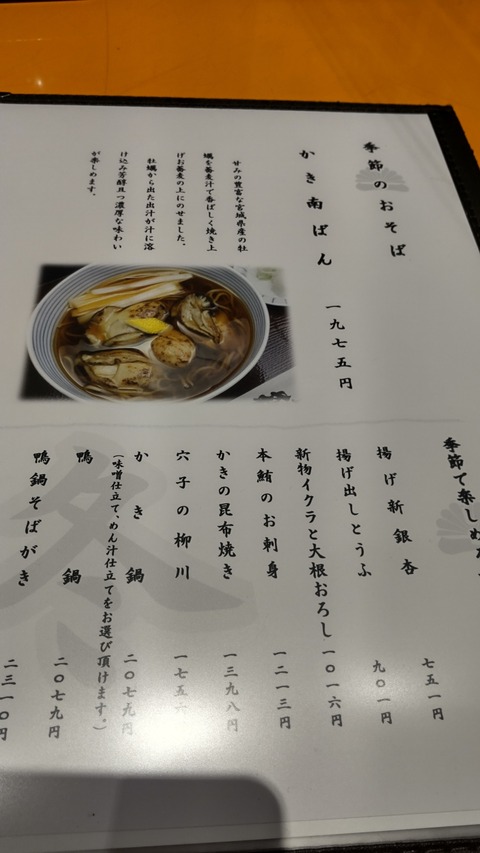 季節のおそば
かき南ばん
一九七五円
甘みの豊富な宮城県産の牡
蠣を蕎麦汁で香ばしく焼き上
げお蕎麦の上にのせました。
牡蠣から出た出汁が汁に溶
け込み芳醇且つ濃厚な味わい
が楽しめます。
季節で楽しめ
揚げ新銀杏
七五一円
揚げ出しとうふ
九〇一円
新物イクラと大根おろし
一〇一六円
本鮪のお刺身
一二一三円
かきの昆布焼き
一三九八円
穴子の柳川
一七五
かき鍋
二〇七九円
(味噌仕立て、めん汁仕立てをお選び頂けます。)
鴨鍋
二〇七九円
鴨鍋そばがき
二三一〇円
冬